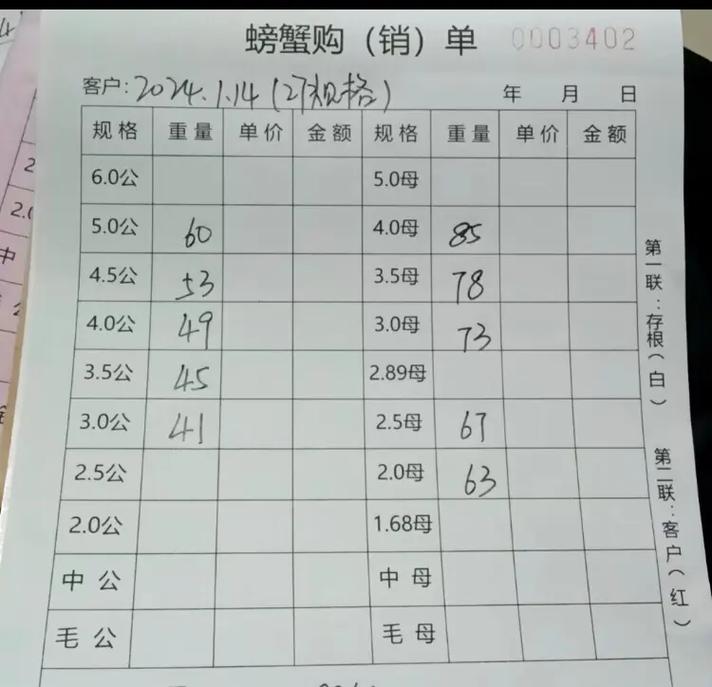 螃蟹购（销）单 0003402
客户: 2024.1.14 (2两规格) 年 月 日
规格 重量 单价 金额 规格 重量 单价 金额
6.0公 5.0母
5.0公 60 4.0母 85
4.5公 53 3.5母 78
4.0公 49 3.0母 73
3.5公 45 2.89母
3.0公 41 2.5母 67
2.5公 2.0母 63
2.0公 1.68母
中公 中母
毛公 毛母
第一联：存根（白）
第二联：客户（红）